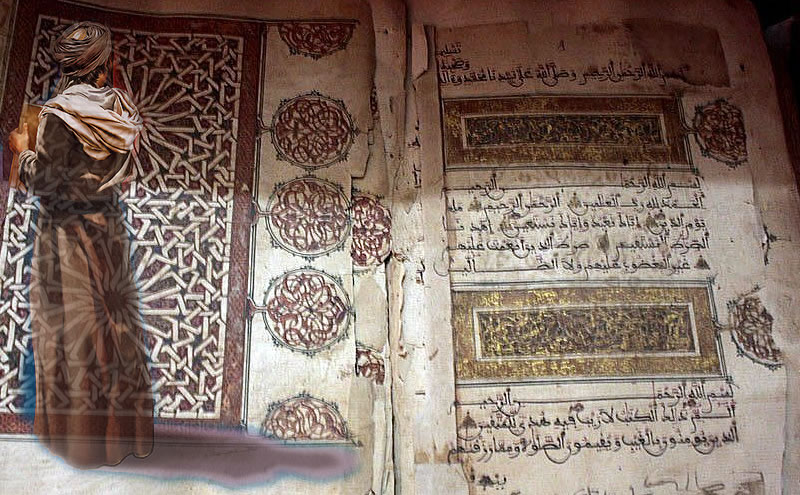 بسم الله الرحمن الرحيم وصلى الله على سيدنا محمد وعلى اله
بسم الله الرحمن الرحيم
الحمد لله رب العلمين الرحمن الرحيم ملك
يوم الدين إياك نعبد وإياك نستعين اهدنا
الصرط المستقيم صرط الذين أنعمت عليهم
غير المغضوب عليهم ولا الضالين
بسم الله الرحمن الرحيم
الم ذلك الكتب لا ريب فيه هدى للمتقين
الذين يومنون بالغيب ويقيمون الصلوة ومما رزقنهم
ينفقون